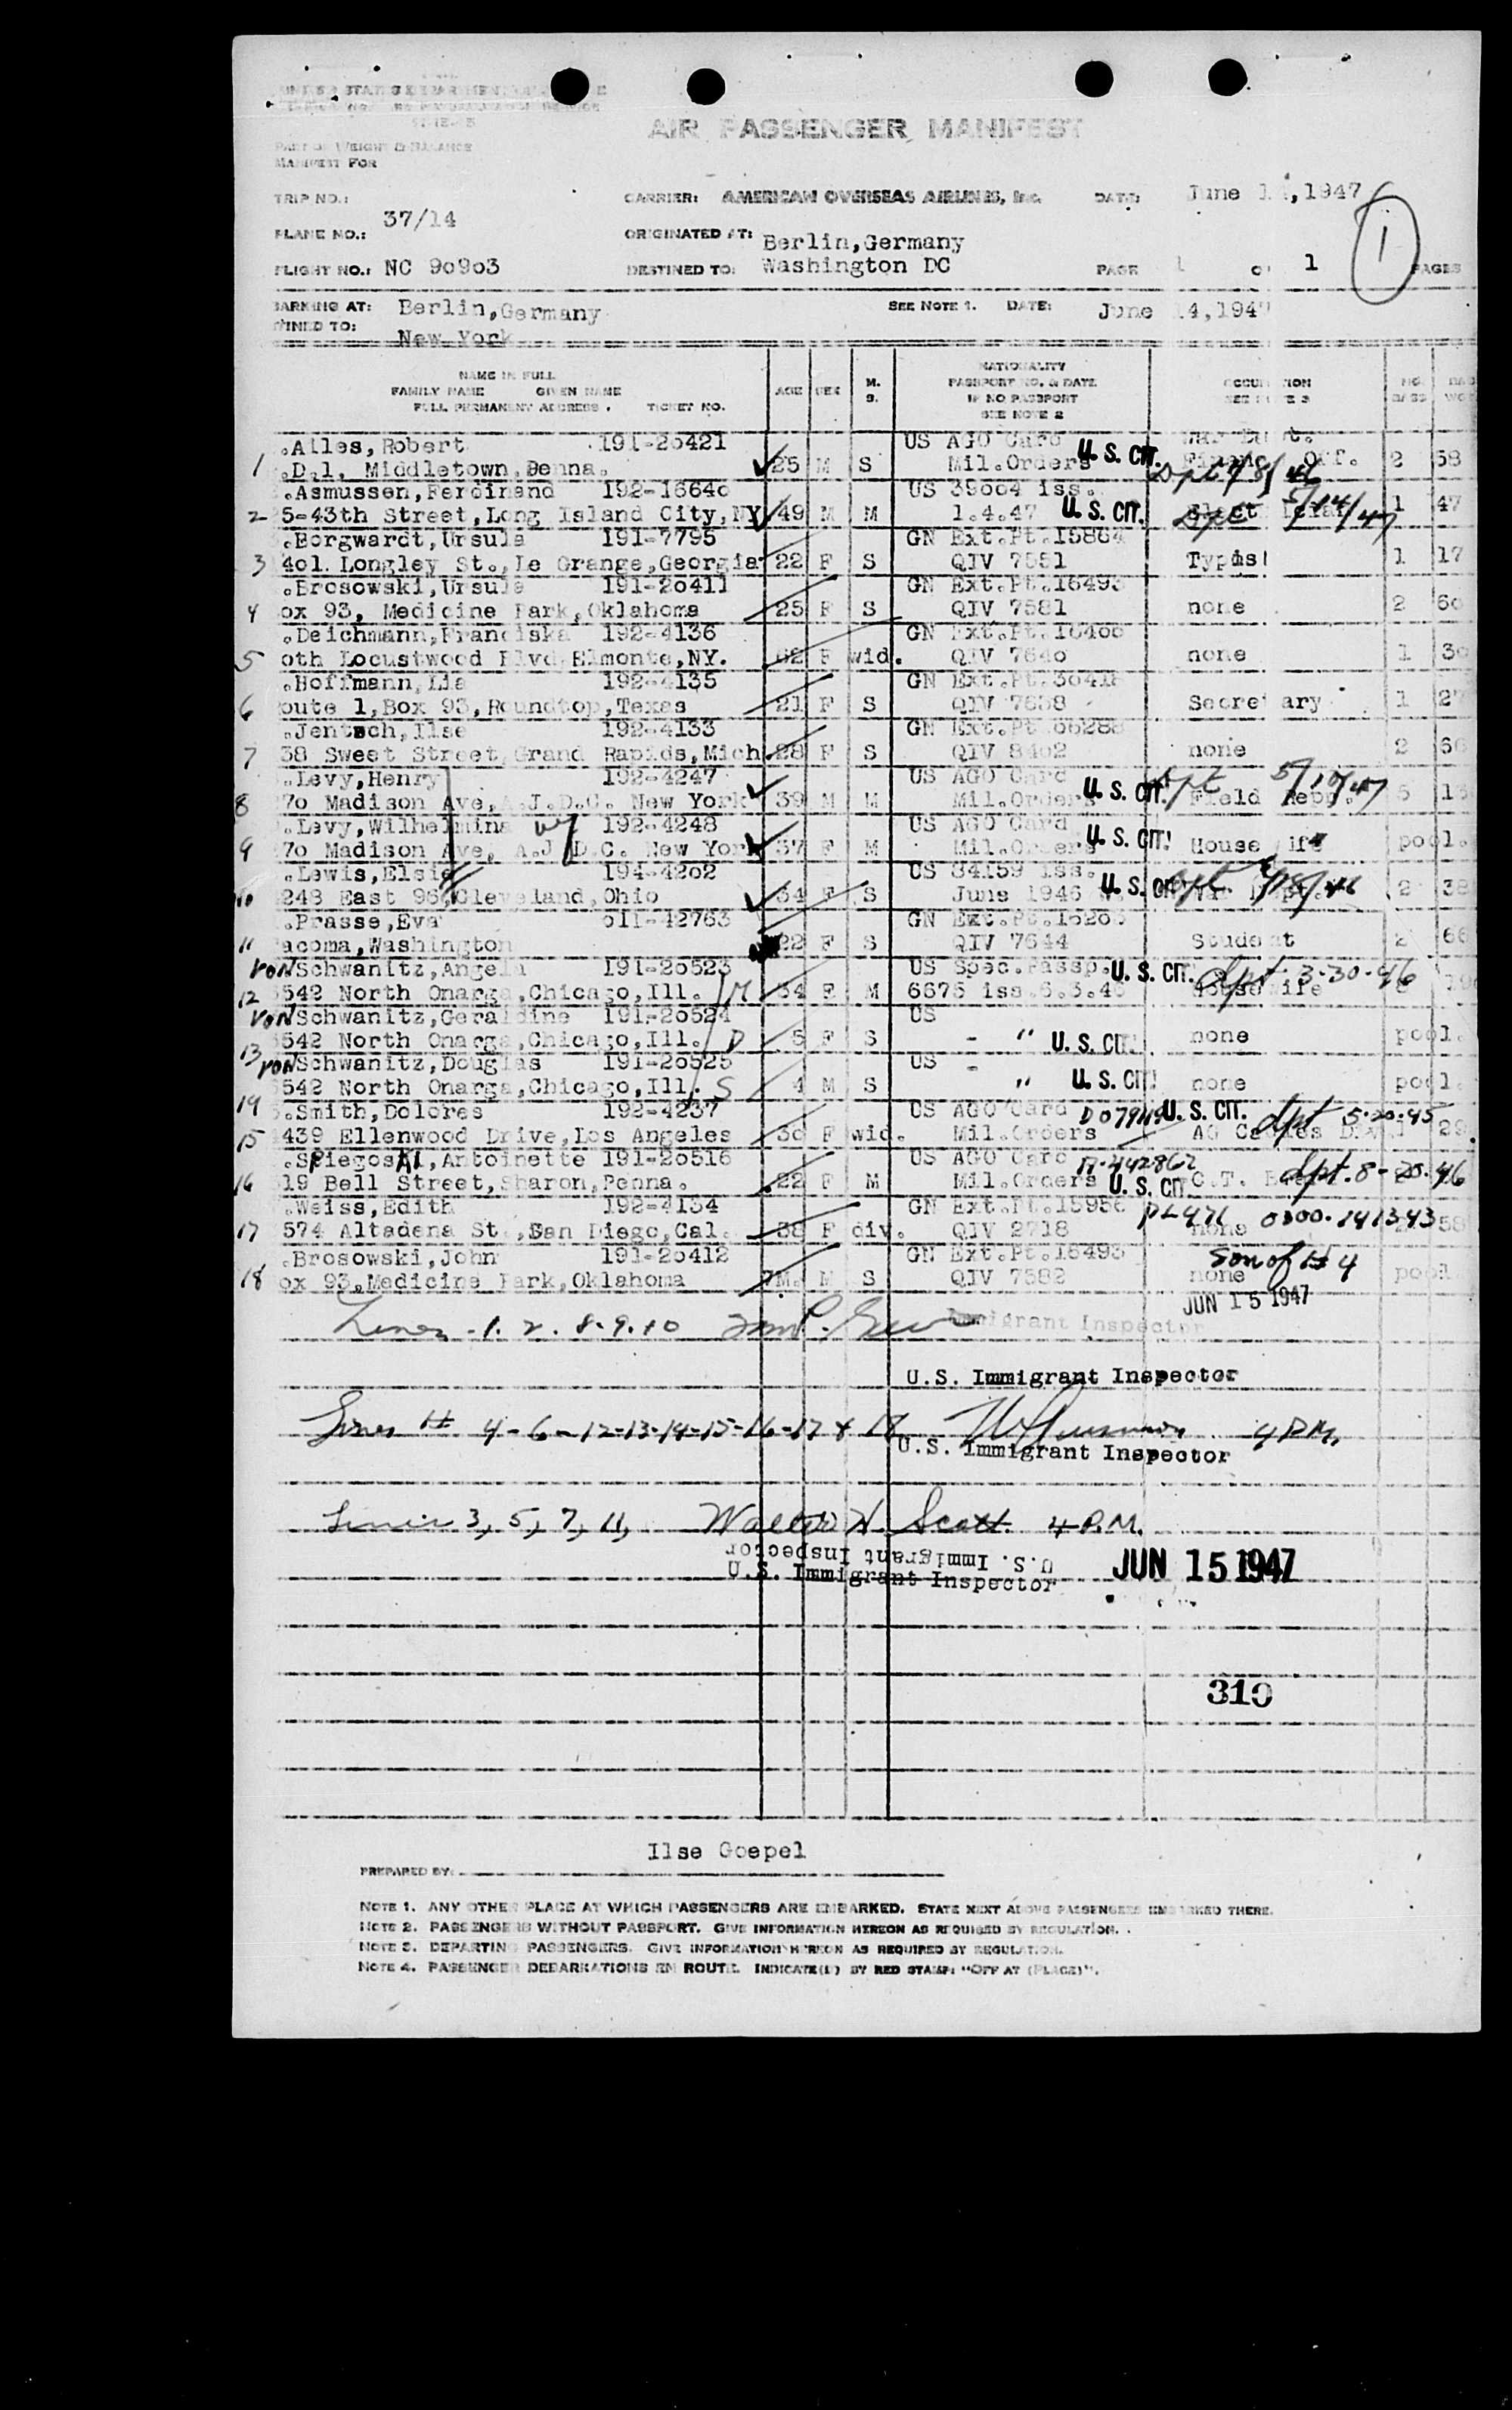 AIR PASSENGER MANIFEST
PART OF WEIGHT & BALANCE
MANIFEST FOR
TRIP NO.: CARRIER: AMERICAN OVERSEAS AIRLINES, Inc. DATE: June 1 ,1947
37/14
PLANE NO.: ORIGINATED AT: Berlin,Germany
FLIGHT NO.: NC 90903 DESTINED TO: Washington DC PAGE 1 OF 1 PAGES
1
BARKING AT: Berlin,Germany SEE NOTE 1. DATE: June 14,1947
TINED TO: New York
NAME IN FULL
FAMILY NAME GIVEN NAME
FULL PERMANENT ADDRESS. TICKET NO.
AGE SEX M. S.
NATIONALITY
PASSPORT NO. & DATE
IF NO PASSPORT
SEE NOTE 2
OCCUPATION
SEE NOTE 3
.Ailes,Robert 191-20421 US AGO Card War Dept.
1 .D.1, Middletown,Penna. 25 M S Mil.Orders U. S. CIT. Off. 2 58
.Asmussen,Ferdinand 192-16640 US 39004 iss.
2 5-43th Street,Long Island City,NY 49 M M 1.4.47 U. S. CIT. 1 47
.Borgwardt,Ursula 191-7795 GN Ext.Pt.15864
3 401 Longley St.,Le Grange,Georgia 22 F S QIV 7551 Typist 1 17
.Brosowski,Ursula 191-20411 GN Ext.Pt.16493
4 ox 93, Medicine Park,Oklahoma 25 F S QIV 7581 none 2 60
.Deichmann,Franciska 192-4136 GN Ext.Pt.16400
5 oth Locustwood Blvd Elmonte,NY. 62 F wid. QIV 7640 none 1 30
.Hoffmann,Lia 192-4135 GN Ext.Pt.
6 oute 1,Box 93,Roundtop,Texas 21 F S QIV 7638 Secretary 1 27
.Jentzsch,Ilse 192-4133 GN Ext.Pt 06288
7 38 Sweet Street,Grand Rapids,Mich. 28 F S QIV 8402 none 2 66
.Levy,Henry 192-4247 US AGO Card
8 70 Madison Ave,A.J.D.C. New York 39 M M Mil.Orders U. S. CIT. Dpt 5/10/47 Field Repr. 5
.Levy,Wilhelmina wf 192-4248 US AGO Card
9 70 Madison Ave, A.J.D.C. New York 37 F M Mil.Orders U. S. CIT. House wife pool.
.Lewis,Elsie 194-4202 US 84159 iss.
10 248 East 96,Cleveland,Ohio 34 F S June 1946 U. S. CIT. 2 38
.Prasse,Eva 011-42763 GN Ext.Pt.
11 acoma,Washington 22 F S QIV 7644 Student 2 66
von Schwanitz,Angela 191-20523 US Spec.Passp. U. S. CIT. dpt. 3-30-46
12 542 North Onarga,Chicago,Ill. M 34 F M 6675 iss.6.3.46 Housewife
von Schwanitz,Geraldine 191-20524 US
13 542 North Onarga,Chicago,Ill. D 5 F S - " U. S. CIT. none pool.
von Schwanitz,Douglas 191-20525 US -
14 542 North Onarga,Chicago,Ill. S 4 M S " U. S. CIT. none pool.
.Smith,Dolores 192-4237 US AGO Card U. S. CIT. dpt 5-20-45
15 439 Ellenwood Drive,Los Angeles 30 F wid. Mil.Orders 29
.Spiegoski,Antoinette 191-20516 US AGO Card
16 19 Bell Street,Sharon,Penna. 22 F M Mil.Orders U. S. CIT dpt. 8-20-46
.Weiss,Edith 192-4134 GN Ext.Pt.15956
17 574 Altadena St.,San Diego,Cal. 38 F div. QIV 2718 none 58
.Brosowski,John 191-20412 GN Ext.Pt.16493 Son of # 4
18 ox 93,Medicine Park,Oklahoma 7M. M S QIV 7582 none pool
JUN 15 1947
Lines - 1. 2. 8. 9. 10 Immigrant Inspector
U.S. Immigrant Inspector
Lines # 4-6-12-13-14-15-16-17 & 18 4 P.M.
U.S. Immigrant Inspector
Lines 3, 5, 7, 11, Waldo H. Scott 4 P.M.
U.S. Immigrant Inspector
U.S. Immigrant Inspector JUN 15 1947
310
Ilse Goepel
PREPARED BY:
NOTE 1. ANY OTHER PLACE AT WHICH PASSENGERS ARE EMBARKED. STATE NEXT ABOVE PASSENGERS EMBARKED THERE.
NOTE 2. PASSENGERS WITHOUT PASSPORT. GIVE INFORMATION HEREON AS REQUIRED BY REGULATION.
NOTE 3. DEPARTING PASSENGERS. GIVE INFORMATION HEREON AS REQUIRED BY REGULATION.
NOTE 4. PASSENGER DEBARKATIONS EN ROUTE. INDICATE(D) BY RED STAMP: "OFF AT (PLACE)".